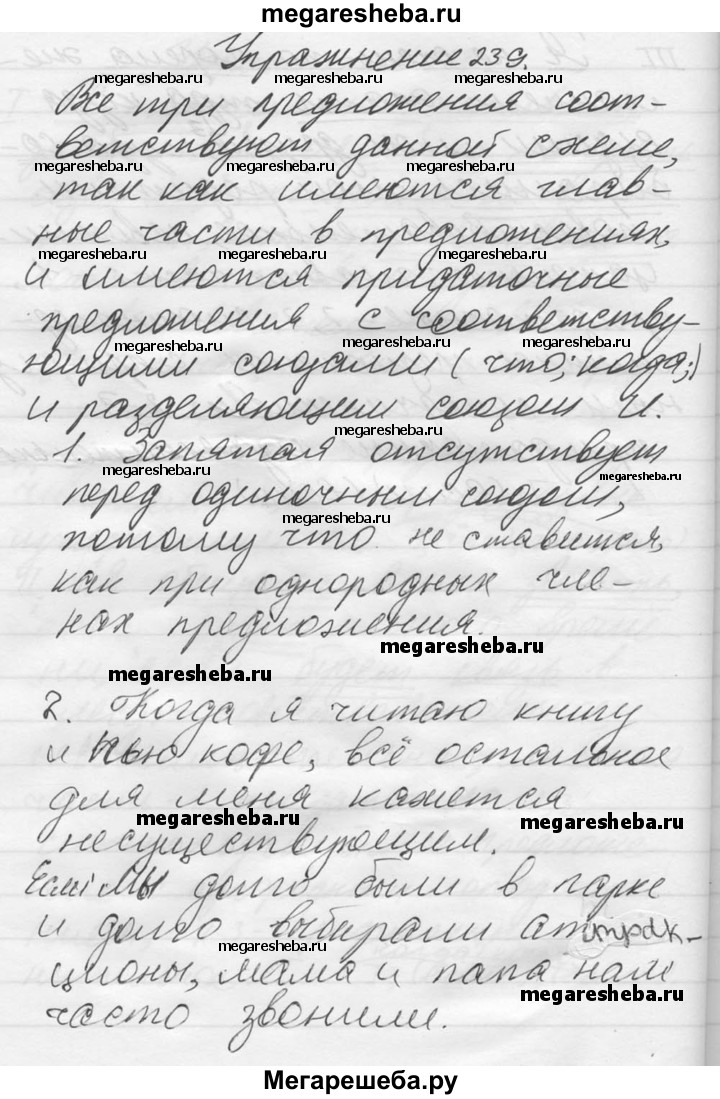 megaresheba.ru
Упражнение 239.
megaresheba.ru megaresheba.ru megaresheba.ru
Все три предложения соот-
ветствуют данной схеме,
megaresheba.ru megaresheba.ru megaresheba.ru
так как имеются глав-
ные части в предложениях,
megaresheba.ru megaresheba.ru megaresheba.ru
и имеются придаточные
предложения с соответству-
megaresheba.ru megaresheba.ru
ющими союзами (что; когда;)
и разделяющим союзом И.
megaresheba.ru
1. Запятая отсутствует
megaresheba.ru megaresheba.ru
перед одиночным союзом,
megaresheba.ru
потому что не ставится,
как при однородных чле-
нах предложения.
megaresheba.ru
megaresheba.ru
2. Когда я читаю книгу
и пью кофе, всё остальное
для меня кажется
megaresheba.ru megaresheba.ru
несуществующим.
Если мы долго были в парке
и долго выбирали аттрак-
megaresheba.ru
ционы, мама и папа нам
megaresheba.ru
часто звонили.
Мегарешеба.ру